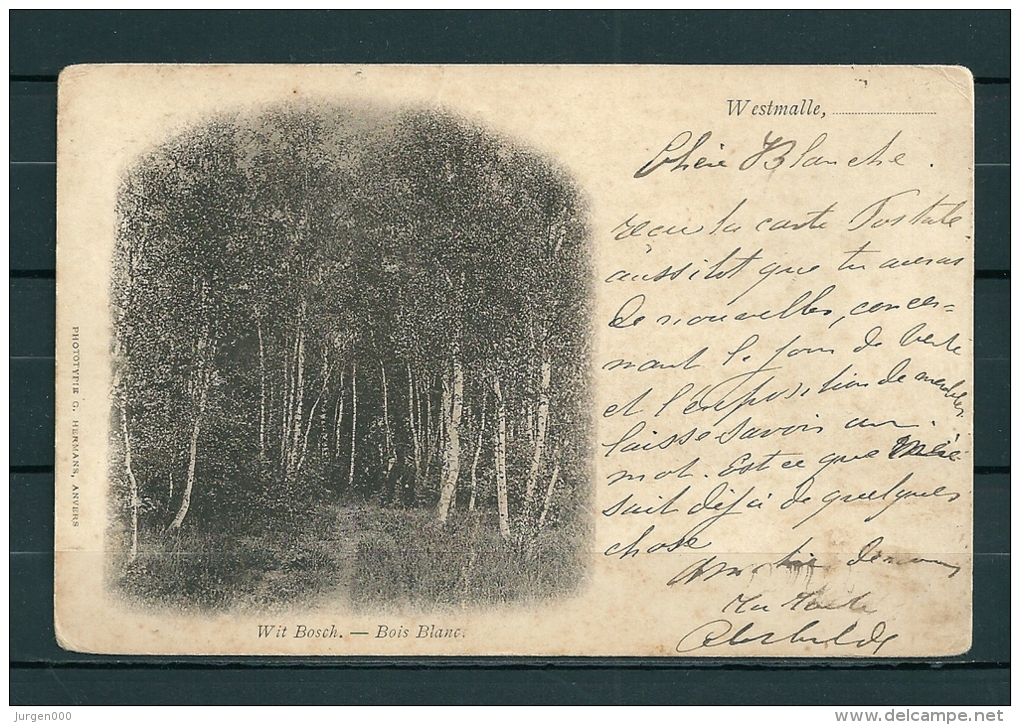 Westmalle,
Chère Blanche.
reçu la carte Postale.
aussitot que tu auras
de nouvelles, concer-
nant le jour de vente
et l'exposition de meubles
laisse savoir un
mot. Est ce que Mère
sait déjà de quelques
chose
PHOTOTYPIE G. HERMANS, ANVERS
Wit Bosch. — Bois Blanc.
Jurgen000
www.delcampe.net